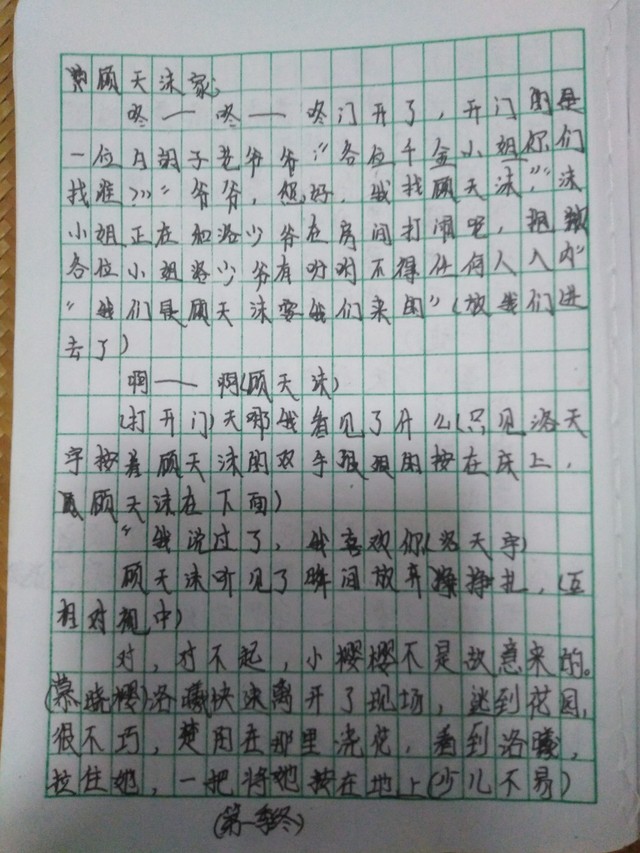 顾天沫家
咚一咚一咚门开了，开门的是
一位白胡子老爷爷："各位千金小姐你们
找谁>>>"爷爷，您好，我找顾天沫""沫
小姐正在和洛少爷在房间打闹吧，抱歉
各位小姐洛少爷有吩咐不得任何人入内"
"我们是顾天沫要我们来的"(放我们进
去了)
啊一啊(顾天沫)
(打开门)天哪我看见了什么(只见洛天
宇按着顾天沫的双手狠狠的按在床上，
顾天沫在下面)
"我说过了，我喜欢你(洛天宇)
顾天沫听见了瞬间放弃挣扎，(互
相对视中)
对，对不起，小樱樱不是故意来的。
(慕晓樱)洛曦快速离开了现场，逃到花园，
很不巧，楚用在那里浇花，看到洛曦，
拉住她，一把将她按在地上(少儿不易)
(第一季终)